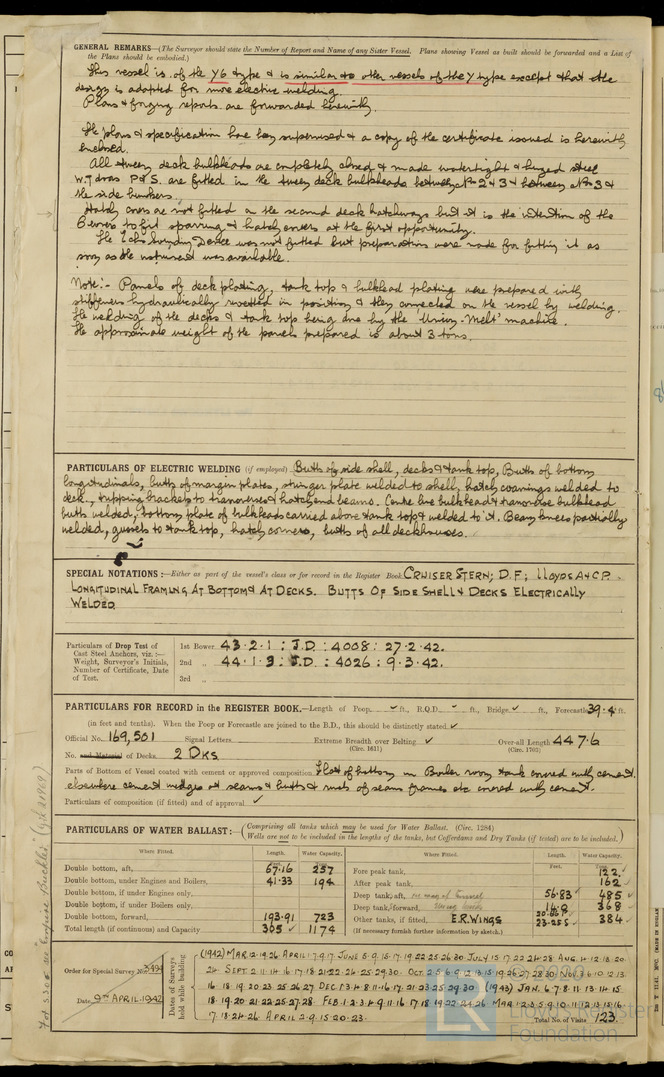 GENERAL REMARKS—(The Surveyor should state the Number of Report and Name of any Sister Vessel. Plans showing Vessel as built should be forwarded and a List of
the Plans should be embodied.)
This vessel is of the Y6 type & is similar to other vessels of the Y type except that the
design is adapted for more electric welding.
Plans & forging reports are forwarded herewith.
The plans & specification have been supervised & a copy of the certificate issued is herewith
enclosed.
All tween deck bulkheads are completely closed & made watertight & hinged steel
W.T. doors P & S. are fitted in the tween deck bulkheads between Nos 2 & 3 & between Nos 3 &
the side bunkers.
Hatch covers are not fitted on the second deck hatchways but it is the intention of the
Owners to fit sparring & hatch covers at the first opportunity.
The Echo Sounding Device was not fitted but preparations were made for fitting it as
soon as the instrument was available.
Note:- Panels of deck plating, tank top & bulkhead plating were prepared with
stiffeners hydraulically riveted in position & they connected on the vessel by welding.
The welding of the decks & tank top being done by the 'Union-Melt' machine.
The approximate weight of the panels prepared is about 3 tons.
PARTICULARS OF ELECTRIC WELDING (if employed) Butts of side shell, decks & tank top, Butts of bottom
longitudinals, butts of margin plates, stringer plate welded to shell, hatch coamings welded to
deck, tripping brackets to transverses & hatch end beams. Centre line bulkhead & transverse bulkhead
butts welded, bottom plate of bulkheads carried above tank top & welded to it. Beam knees partially
welded, gussets to tank top, hatch corners, butts of all deckhouses.
SPECIAL NOTATIONS:—Either as part of the vessel's class or for record in the Register Book. CRUISER STERN; D.F; LLOYDS A & C.P.
LONGITUDINAL FRAMING AT BOTTOM & AT DECKS. BUTTS OF SIDE SHELL & DECKS ELECTRICALLY
WELDED
Particulars of Drop Test of
Cast Steel Anchors, viz.:—
Weight, Surveyor's Initials,
Number of Certificate, Date
of Test.
1st Bower 43.2.1 : J.D : 4008 : 27.2.42.
2nd „ 44.1.3 : J.D : 4026 : 9.3.42.
3rd „
PARTICULARS FOR RECORD in the REGISTER BOOK.—Length of Poop ✓ ft., R.Q.D. - ft., Bridge ✓ ft., Forecastle 39.4 ft.
(in feet and tenths). When the Poop or Forecastle are joined to the B.D., this should be distinctly stated ✓
Official No. 169,501 Signal Letters Extreme Breadth over Belting ✓ Over-all Length 447.6
(Circ. 1611) (Circ. 1703)
No. and Material of Decks 2 DKS
Parts of Bottom of Vessel coated with cement or approved composition. Flat of bottom in Boiler room tank covered with cement.
elsewhere cement wedges at seams & butts & ends of seams frames etc covered with cement.
Particulars of composition (if fitted) and of approval ✓
PARTICULARS OF WATER BALLAST:— (Comprising all tanks which may be used for Water Ballast. (Circ. 1284)
Wells are not to be included in the lengths of the tanks, but Cofferdams and Dry Tanks (if tested) are to be included.)
Where Fitted. Length. Water Capacity. Where Fitted. Length. Water Capacity.
Double bottom, aft, 67.16 257
Double bottom, under Engines and Boilers, 41.33 194
Double bottom, if under Engines only,
Double bottom, if under Boilers only,
Double bottom, forward, 193.91 723
Total length (if continuous) and Capacity 305 ✓ 1174
Fore peak tank, 122
After peak tank, 162
Deep tank, aft, 56.83 485
Deep tank, forward, 368
Other tanks, if fitted, E.R. WINGS 23.25 S 384
(If necessary furnish further information by sketch.)
Order for Special Survey No. 3494
Date 9TH APRIL 1942
Dates of Surveys held while building
(1942) MAR 12.19.26 APRIL 1.7.9.17 JUNE 5.9.15.17.19.22.25.26.30 JULY 15.17.22.24.28 AUG 4.12.18.20
24 SEPT 2.11.14.16.17.18.21.22.24.25.29.30 OCT. 2.5.6.9.12.13.15.19.26.27.28.30 NOV 6.10.12.13
16.18.19.20.23.25.26.27 DEC 1.3.4.8.11.16.17.21.23.25.29.30 (1943) JAN. 6.7.8.11.13.14.15
18.19.20.21.22.25.27.28 FEB. 1.2.3.4.9.11.16.17.18.19.22.24.26 MAR 1.2.3.5.9.10.11.12.13.15.16
17.18.24.26 APRIL 2.9.15.20.23.
Total No. of Visits 123
Lloyd's Register
Foundation